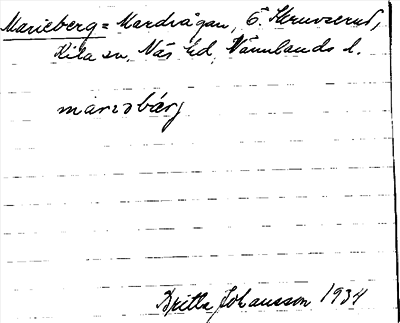 Marieberg = Mardvågan, Ö. Skruvserud,
Kila sn, Näs hd, Värmlands l.
marɪəbárj
Britta Johansson 1934